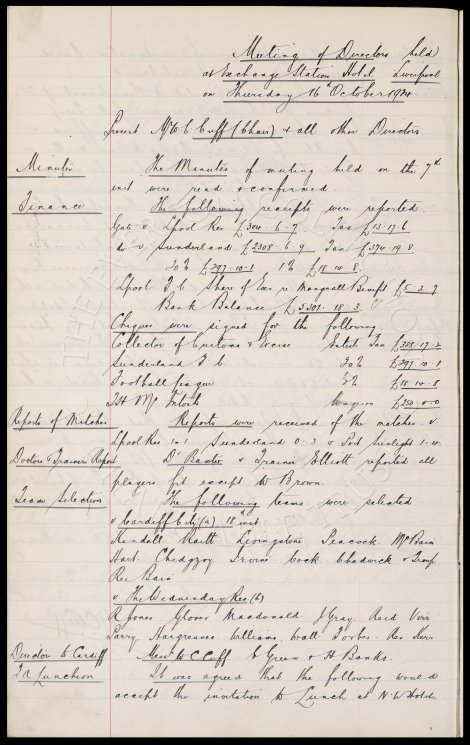 Meeting of Directors held
at Exchange Station Hotel Liverpool
on Thursday 16th October 1924.
Present Mr W C Cuff (Chair) & all other Directors
Minutes
The Minutes of meeting held on the 7th
inst were read & confirmed
Finance
The following receipts were reported.
Gate v Lpool Res £304-6-7 Tax £13-17-6
do v Sunderland £2308-6-9 Tax £374-19-8
20% £297-10-1 1% £18-14-8
Lpool F C Share of Gate v Benefit £5-2-7
Bank Balance £5301-18-3
Cheques were signed for the following
Collector of Customs & Excise Entert Tax £388-17-2
Sunderland F C 20% £297-10-1
Football League 1% £18-14-8
J H McIntosh Wages £250-0-0
Reports of Matches
Reports were received of the matches v.
Lpool Res 1-1 Sunderland 0-3 & Port Sunlight 1-
Doctors & Trainers Report
Dr Baxter & Trainer Elliott reported all
players fit except W Brown.
Team Selection
The following teams were selected
v Cardiff City (a) 18th inst
Kendall Raitt Livingstone Peacock McBain
Hart Chedgzoy Irvine Cock Chadwick &
Res Bain
v The Wednesday Res (h)
R Jones Glover Macdonald J Gray Reid Virr
Parry Hargreaves Williams Wall Forbes. Res Kerr
Directors to Cardiff
Messrs W C Cuff Green & H Banks.
F A Luncheon
It was agreed that the following would
accept the invitation to Lunch at N.W Hotel.